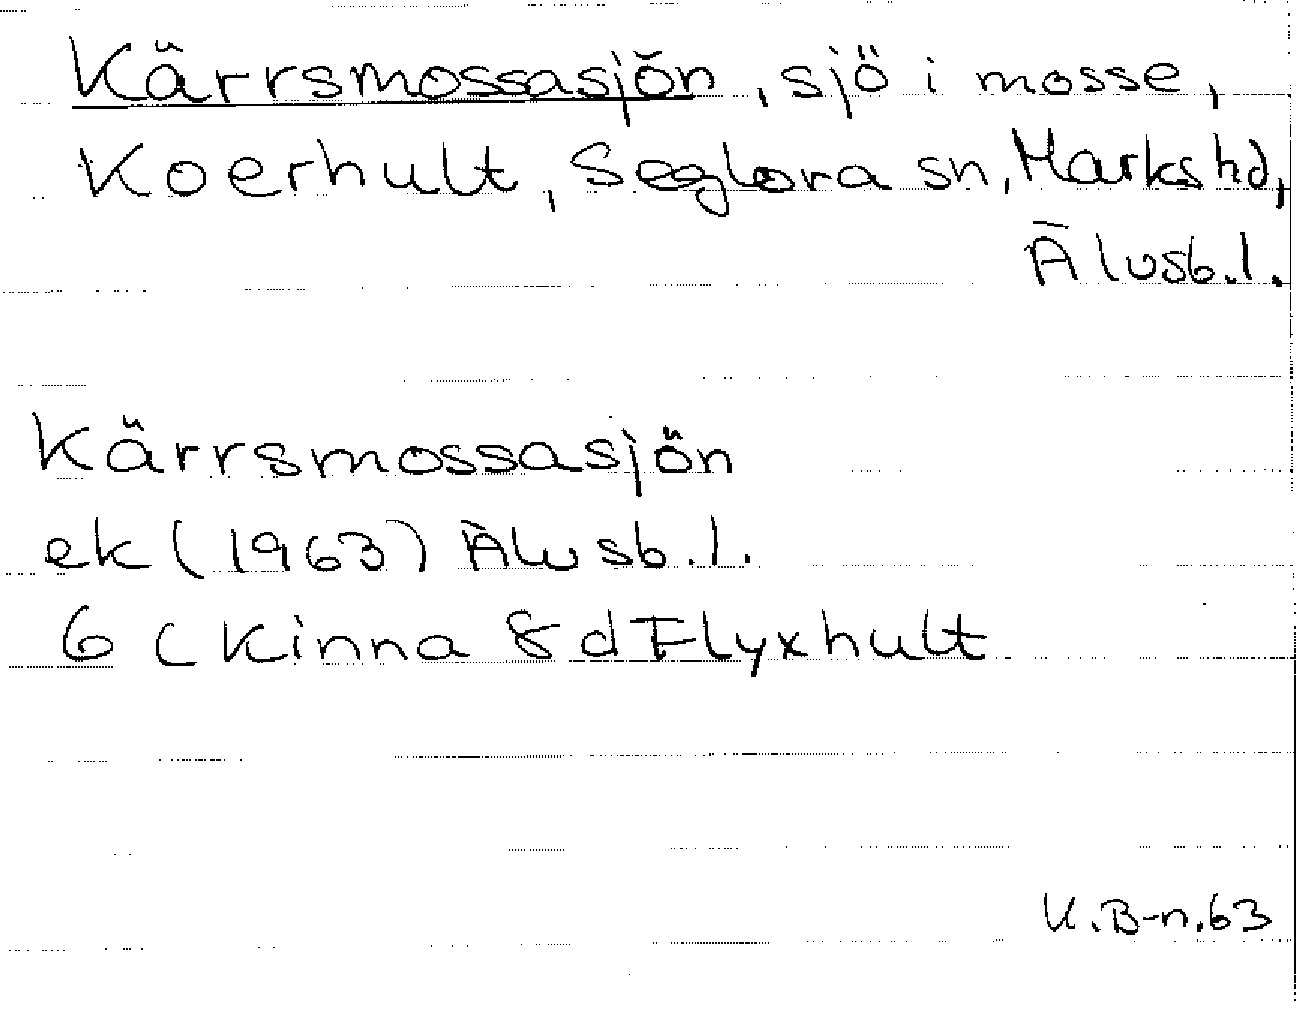 Kärrsmossasjön, sjö i mosse,
Koerhult, Seglora sn, Marks hd,
Älvsb.l.
Kärrsmossasjön
ek (1963) Älvsb.l.
6 (Kinna 8 d Flyxhult
K.B-n.63